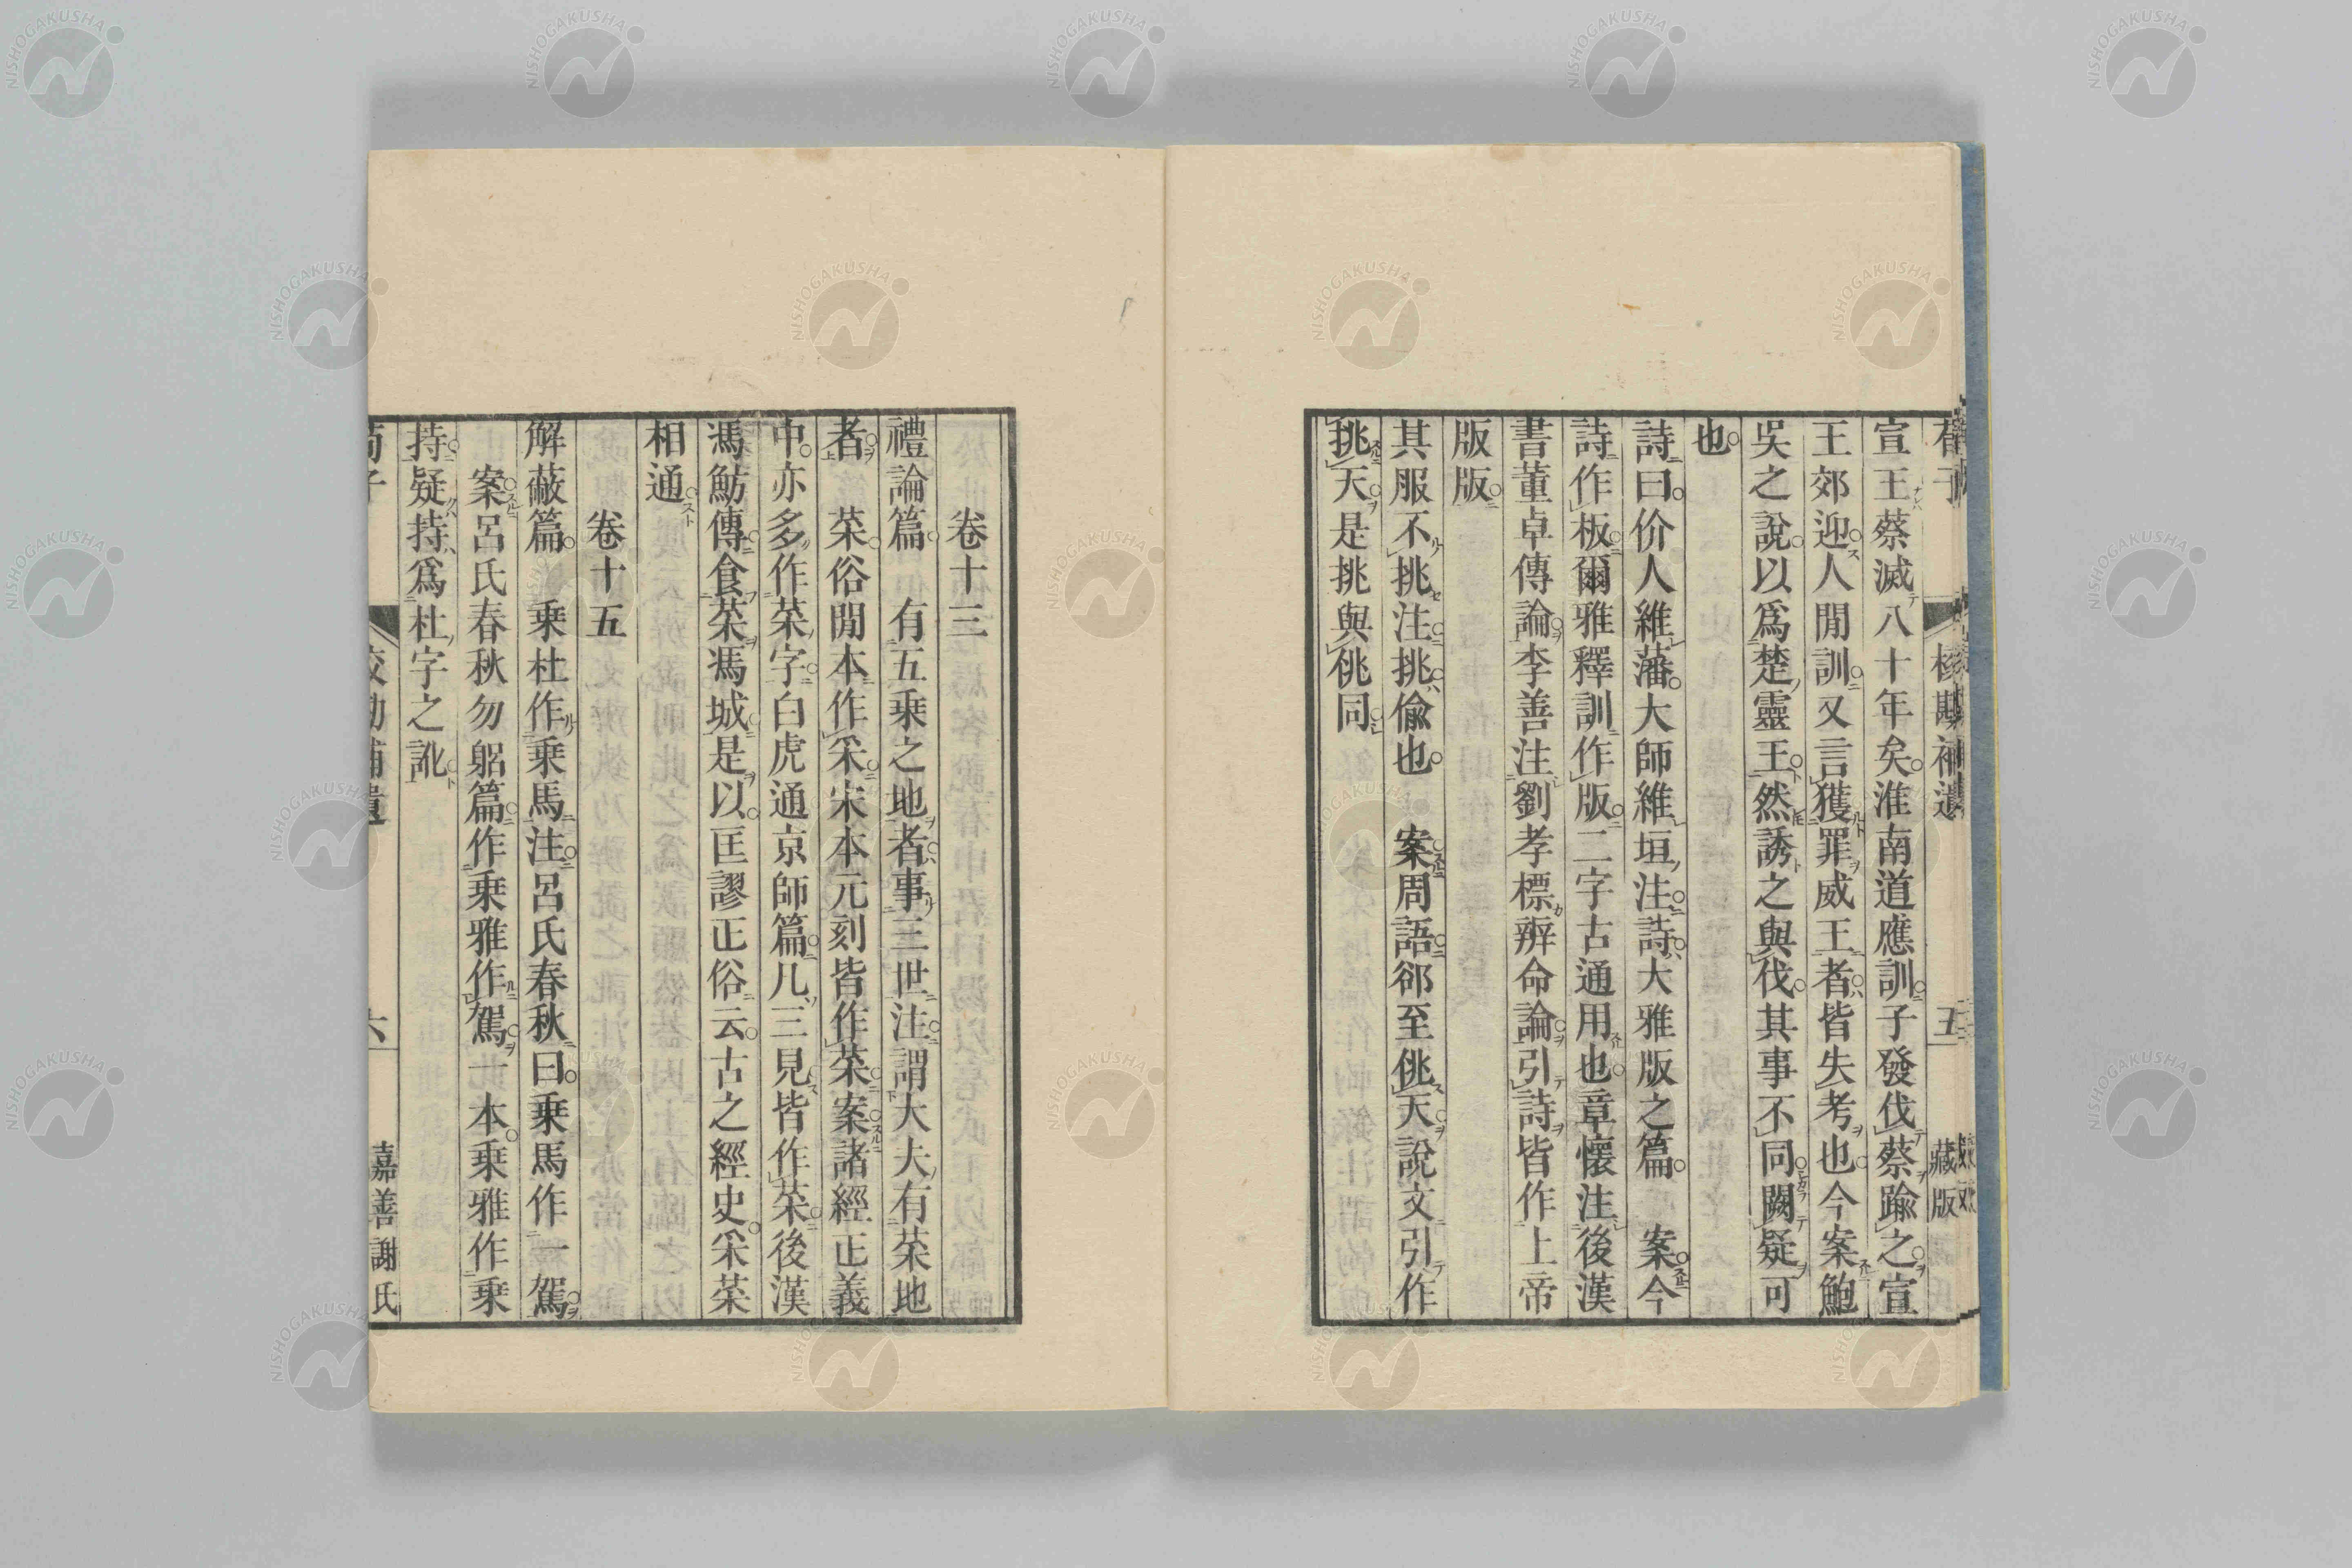 荀子 校勘補遺 五 藏版
宣王蔡滅八十年矣淮南道應訓子發伐蔡踰之宣
王郊迎人閒訓又言獲罪威王者皆失考也今案鮑
吳之說以爲楚靈王然誘之與伐其事不同闕疑可
也
詩曰价人維藩大師維垣注詩大雅版之篇 案今
詩作板爾雅釋訓作版二字古通用也章懷注後漢
書董卓傳論李善注劉孝標辨命論引詩皆作上帝
版版
其服不挑注挑偸也 案周語郤至佻天說文引作
挑天是挑與佻同
卷十三
禮論篇 有五乘之地者事三世注謂大夫有菜地
者 菜俗閒本作采宋本元刻皆作菜案諸經正義
中亦多作菜字白虎通京師篇凡三見皆作菜後漢
馮魴傳食菜馮城是以匡謬正俗云古之經史采菜
相通
卷十五
解蔽篇 乘杜作乘馬注呂氏春秋曰乘馬作一駕
案呂氏春秋勿躬篇作乘雅作駕一本乘雅作乘
持疑持爲杜字之訛
荀子 校勘補遺 六 嘉善謝氏
NISHOGAKUSHA